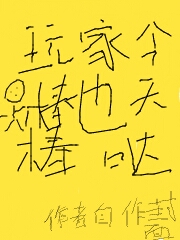 玩家今
是棒也天
棒哒
作者自作封
面